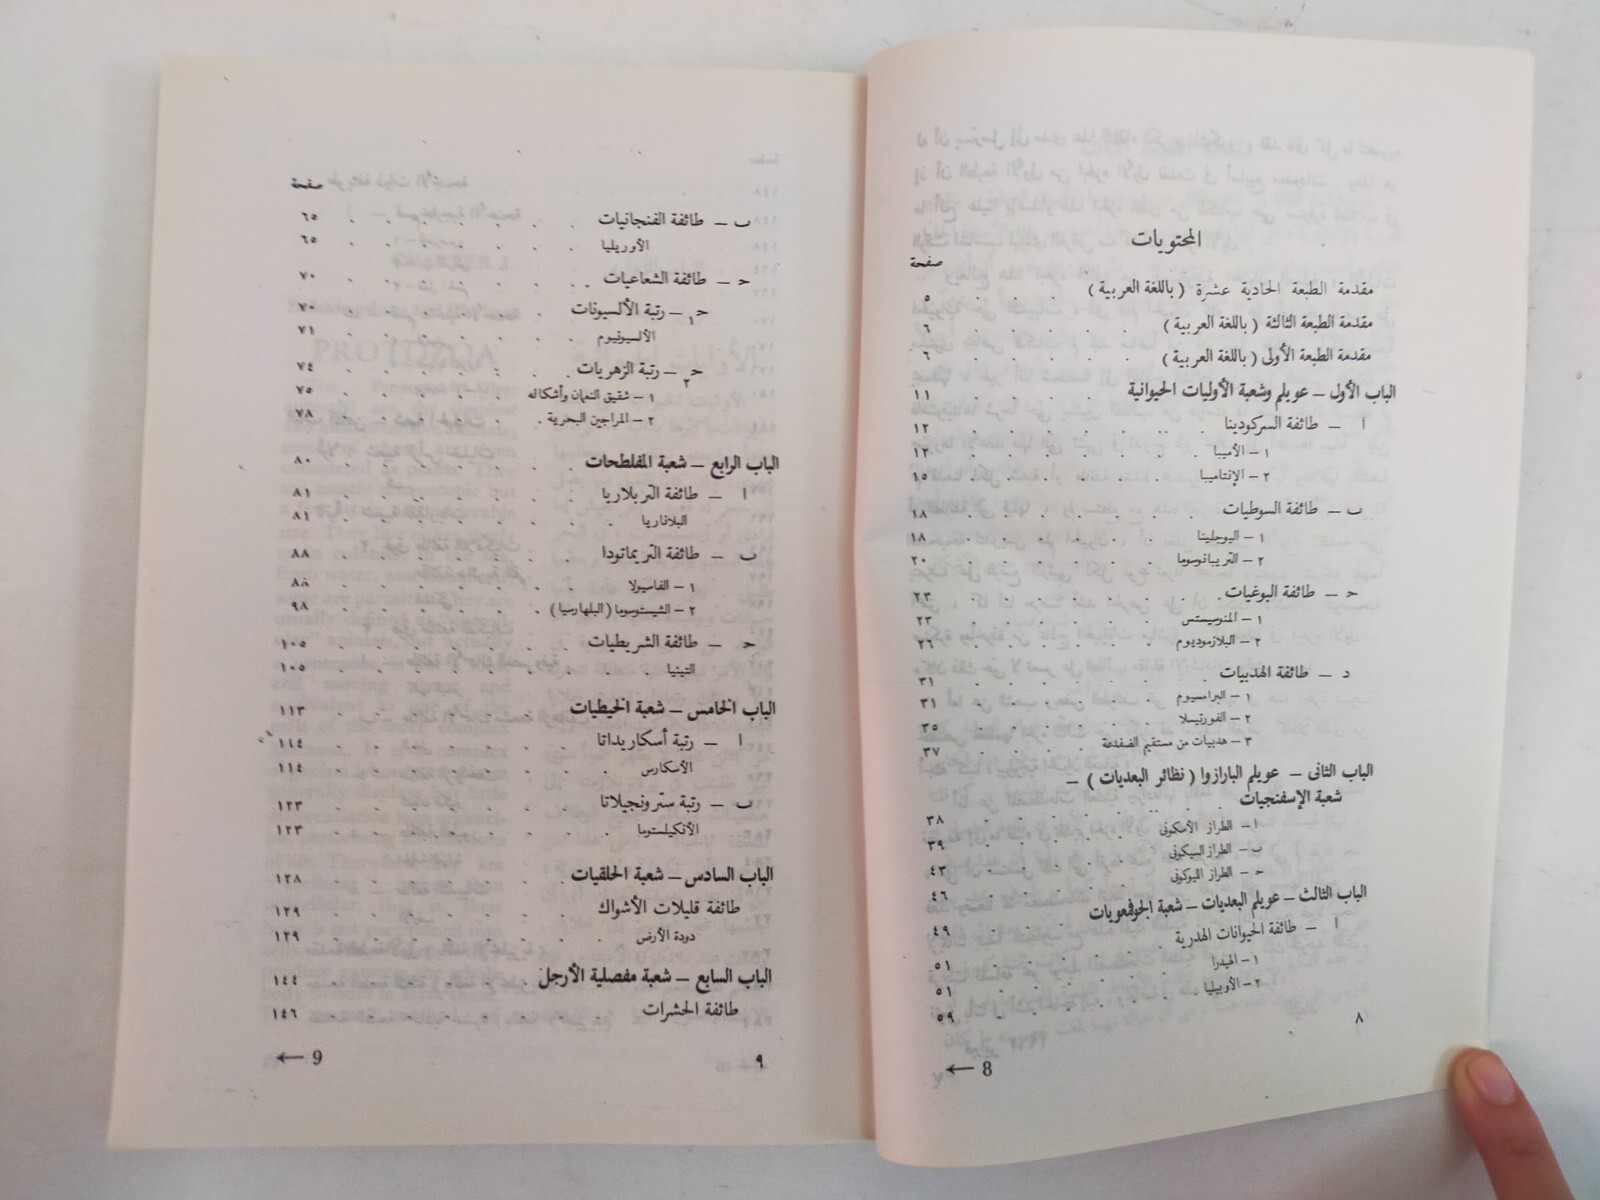 المحتويات
صفحة
مقدمة الطبعة الحادية عشرة ( باللغة العربية ) . . . ٥
مقدمة الطبعة الثالثة ( باللغة العربية ) . . . . ٦
مقدمة الطبعة الأولى ( باللغة العربية ) . . . . ٦
الباب الأول – عويلم وشعبة الأوليات الحيوانية . . . ١١
ا – طائفة السركودينا . . . . . ١٢
١ – الأميبا . . . . . ١٢
٢ – الإنتاميبا . . . . . ١٥
ب – طائفة السوطيات . . . . . ١٨
١ – اليوجلينا . . . . . ١٨
٢ – التريبانوسوما . . . . . ٢٠
ح – طائفة البوغيات . . . . . ٢٣
١ – المنوسيستس . . . . . ٢٣
٢ – البلازموديوم . . . . . ٢٦
د – طائفة الهدبيات . . . . . ٣١
١ – البرامسيوم . . . . . ٣١
٢ – الفورتيسلا . . . . . ٣٥
٣ – هدبيات من مستقيم الضفدعة . . . ٣٧
الباب الثانى – عويلم البارازوا ( نظائر البعديات ) –
شعبة الإسفنجيات . . . . . ٣٨
ا – الطراز الأسكونى . . . . ٣٩
ب – الطراز السيكونى . . . . ٤٣
ح – الطراز الليوكونى . . . . ٤٦
الباب الثالث – عويلم البعديات – شعبة الجوفمعويات . ٤٩
ا – طائفة الحيوانات الهدرية . . . . ٥١
١ – الهيدرا . . . . . ٥١
٢ – الأوبيليا . . . . . ٥٩
٨
← 8
صفحة
ب – طائفة الفنجانيات . . . . . ٦٥
الأوريليا . . . . . ٦٥
ح – طائفة الشعاعيات . . . . . ٧٠
ح١ – رتبة الألسيونات . . . . . ٧٠
الألسيونيوم . . . . . ٧١
ح٢ – رتبة الزهريات . . . . . ٧٤
١ – شقيق النعمان وأشكاله . . . . ٧٥
٢ – المراجين البحرية . . . . ٧٨
الباب الرابع – شعبة المفلطحات . . . . ٨٠
ا – طائفة التربلاريا . . . . . ٨١
البلاناريا . . . . . ٨١
ب – طائفة التريماتودا . . . . . ٨٨
١ – الفاسيولا . . . . . ٨٨
٢ – الشيستوسوما ( البلهارسيا ) . . . . ٩٨
ح – طائفة الشريطيات . . . . . ١٠٥
التينيا . . . . . ١٠٥
الباب الخامس – شعبة الخيطيات . . . . ١١٣
ا – رتبة أسكاريداتا . . . . . ١١٤
الأسكارس . . . . . ١١٤
ب – رتبة سترونجيلاتا . . . . . ١٢٣
الأنكيلستوما . . . . . ١٢٣
الباب السادس – شعبة الحلقيات . . . . ١٢٨
طائفة قليلات الأشواك . . . . . ١٢٩
دودة الأرض . . . . . ١٢٩
الباب السابع – شعبة مفصلية الأرجل . . . . ١٤٤
طائفة الحشرات . . . . . ١٤٦
٩
← 9